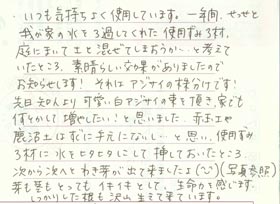 いつも気持ちよく使用しています。一年間、せっせと
我が家の水を3過してくれた使用ずみ3材、
庭にまいて土と混ぜてしまおうか…と考えて
いたところ、素晴らしい効果がありましたので
お知らせします! それはアジサイの株分けです!
先日知人より可愛い白アジサイの束を頂き、家でも
何とかして増やしたい!と思いました。赤玉土や
鹿沼土はすぐに手元にないし…と思い、使用ずみ
3材に水をヒタヒタにして挿しておいたところ、
次から次へとわき芽が出て来ましたよ(^^)(写真参照)
芽も茎もとってもイキイキとして、生命力を感じます。
しっかりした根も沢山生えて来ています。